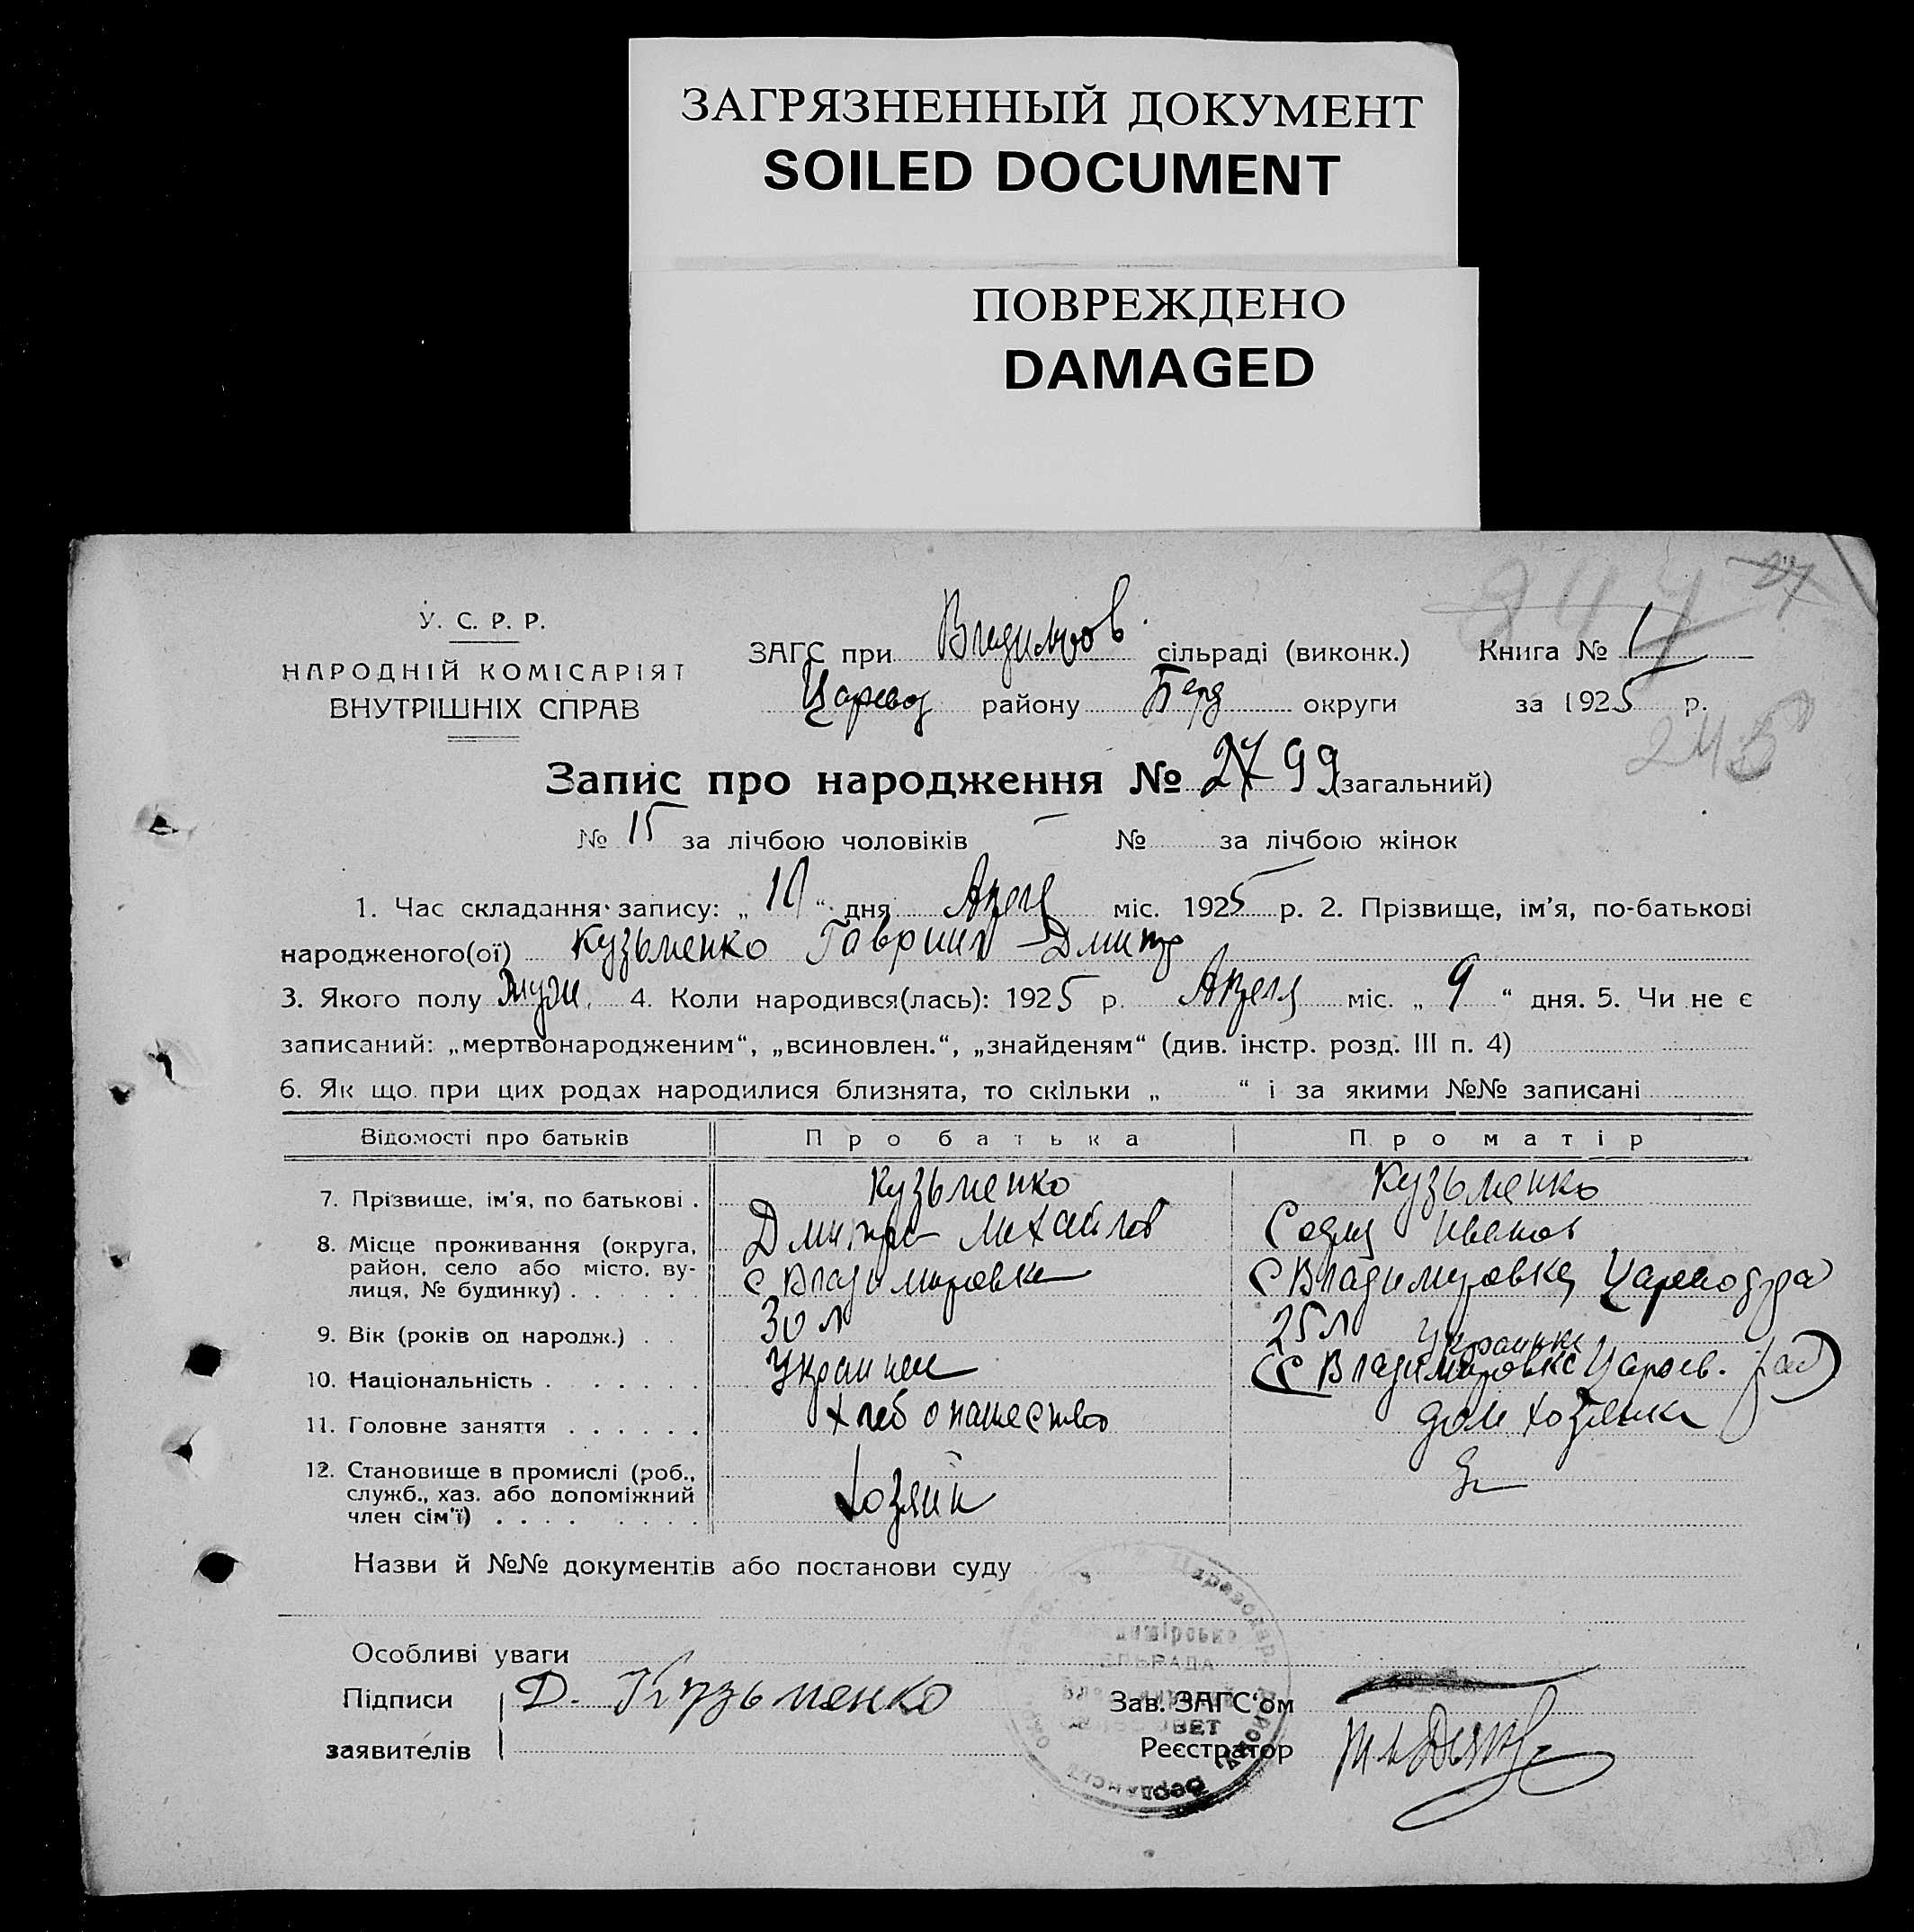 ЗАГРЯЗНЕННЫЙ ДОКУМЕНТ
SOILED DOCUMENT
ПОВРЕЖДЕНО
DAMAGED
244 27
У. С. Р. Р.
НАРОДНІЙ КОМІСАРІЯТ
ВНУТРІШНІХ СПРАВ
ЗАГС при Владимиров. сільраді (виконк.) Книга № 1
Царевод району Берд округи за 1925 р.
245
Запис про народження № 27 99 (загальний)
№ 15 за лічбою чоловіків № — за лічбою жінок
1. Час складання запису: „ 10 “ дня Апеля міс. 1925 р. 2. Прізвище, ім'я, по-батькові
народженого(ої) Кузьменко Гавриил Дмитр
3. Якого полу муж. 4. Коли народився(лась): 1925 р. Апеля міс. „ 9 “ дня. 5. Чи не є
записаний: „мертвонародженим“, „всиновлен.“, „знайденям“ (див. інстр. розд. III п. 4)
6. Як що при цих родах народилися близнята, то скільки „ “ і за якими №№ записані
Відомості про батьків Про батька Про матір
7. Прізвище, ім'я, по батькові . Кузьменко Кузьменко
Дмитро Михайлов Иванов
8. Місце проживання (округа, район, село або місто, вулиця, № будинку) . . . . . . с Владимировка с Владимировка
9. Вік (років од народж.) . . 30 л 25 л
10. Національність . . . . . . . Украинец Украинка
(с Владимировка Царев. рай)
11. Головне заняття . . . . . . хлебопашество дом хозяйка
12. Становище в промислі (роб., служб., хаз. або допоміжний член сім'ї) . . . . . . . . Хозяин
Назви й №№ документів або постанови суду
Особливі уваги
Підписи Д. Кузьменко Зав. ЗАГС'ом
заявителів Реєстратор